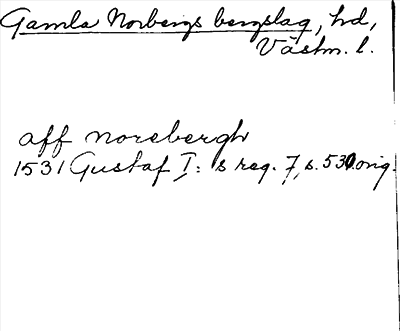 Gamla Norbergs bergslag, hd,
Västm. l.
aff norebergh
1531 Gustaf I:s reg. 7, s. 530 orig.